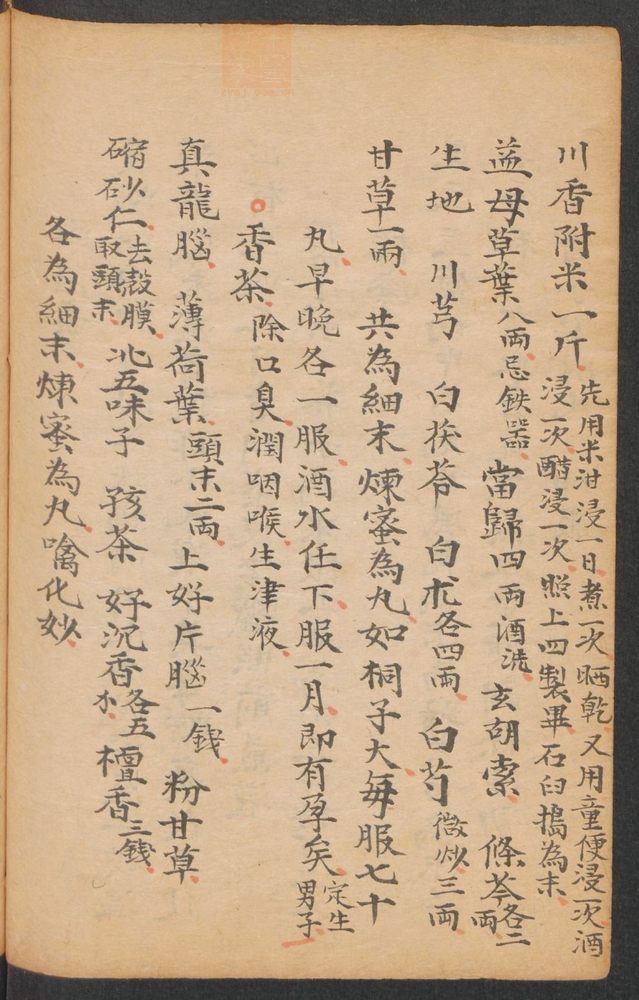 川香附米一斤先用米泔浸一日煮一次晒乾又用童便浸一次酒
浸一次醋浸一次照上四製畢石臼搗為末
益母草葉八兩忌鉄器當歸四兩酒洗玄胡索條芩各二兩
生地川芎白茯苓白朮各四兩白芍微炒三兩
甘草一兩共為細末煉蜜為丸如桐子大每服七十
丸早晚各一服酒水任下服一月即有孕矣定生男子
香茶除口臭潤咽喉生津液
真龍腦薄荷葉頭末二兩上好片腦一錢粉甘草
縮砂仁去殼膜取頭末北五味子孩茶好沉香各五水檀香三錢
各為細末煉蜜為丸噙化妙